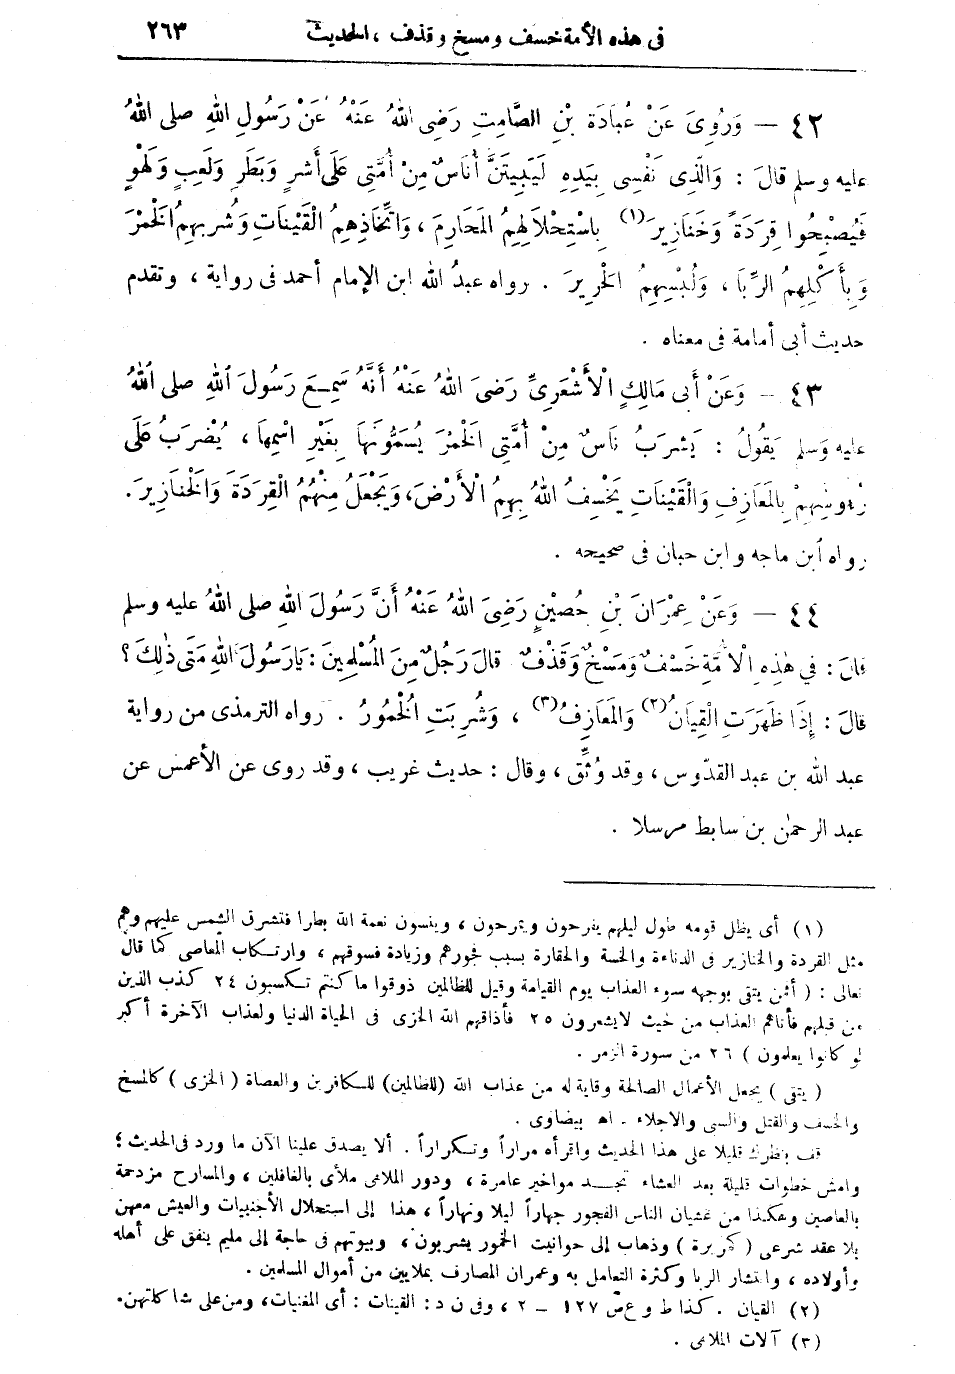 فى هذه الأمة خسف ومسخ وقذف ، الحديث ٢٦٣
٤٢ — وَرُوِىَ عَنْ عُبَادَةَ بْنِ الصَّامِتِ رَضِى اللهُ عَنْهُ عَنْ رَسُولِ اللهِ صلى اللهُ
عليه وسلم قالَ : وَالَّذِى نَفْسِى بِيَدِهِ لَيَبِيتَنَّ أُنَاسٌ مِنْ أُمَّتِى عَلَى أَشَرٍ وَبَطَرٍ وَلَعِبٍ وَلَهْوٍ
فَيُصْبِحُوا قِرَدَةً وَخَنَازِيرَ (١) بِاسْتِحْلَالِهِمُ المَحَارِمَ ، وَاتِّخَاذِهِمُ الْقَيْنَاتِ وَشُربِهِمُ الْخَمْرَ
وَبِأَكْلِهِمُ الرِّبَا ، وَلُبْسِهِمُ الحَرِيرَ . رواه عبدُ الله ابن الإمام أحمد فى رواية ، وتقدم
حديث أبى أمامة فى معناه .
٤٣ — وَعَنْ أبى مَالِكٍ الْأَشْعَرِىِّ رَضىَ اللهُ عَنْهُ أَنَّهُ سَمِعَ رَسُولَ اللهِ صلى اللهُ
عليه وَسلم يَقُولُ : يَشرَبُ نَاسٌ مِنْ أُمَّتِى الخَمْرَ يُسَمُّونَهَا بِغَيْرِ اسْمِهَا ، يُضْرَبُ عَلَى
رُءُوسِهِمْ بِالمَعَازِفِ وَالْقَيْنَاتِ يَخْسِفُ اللهُ بِهِمُ الْأَرْضَ، وَيَجْعَلُ مِنْهُمُ الْقِرَدَةَ وَالْخَنَازِيرَ.
رواه ابن ماجه وابن حبان فى صحيحه .
٤٤ — وَعَنْ عِمْرَانَ بْنِ حُصَيْنٍ رَضِىَ اللهُ عَنْهُ أَنَّ رَسُولَ اللهِ صلى اللهُ عليه وسلم
قالَ : فِي هٰذِهِ الْأُمَّةِ خَسْفٌ وَمَسْخٌ وَقَذْفٌ قالَ رَجُلٌ مِنَ المُسْلِمِينَ : يَارَسُولَ اللهِ مَتَى ذٰلِكَ ؟
قالَ : إِذَا ظَهَرَتِ الْقِيَانُ (٢) وَالمَعَازِفُ (٣) ، وَشُرِبَتِ الْخُمُورُ . رواه الترمذى من رواية
عبد الله بن عبد القدّوس ، وقد وُثِّقَ ، وقال : حديث غريب ، وقد روى عن الأعمش عن
عبد الرحمٰن بن سابط مرسلا .
(١) أى يظل قومه طول ليلهم يفرحون ويمرحون ، وينسون نعمة الله بطرا فتشرق الشمس عليهم وهم
مثل القردة والخنازير فى الدناءة والخسة والحقارة بسبب فجورهم وزيادة فسوقهم ، وارتكاب المعاصى كما قال
تعالى : ( أفمن يتقى بوجهه سوء العذاب يوم القيامة وقيل للظالمين ذوقوا ما كنتم تكسبون ٢٤ كذب الذين
من قبلهم فأتاهم العذاب من حيث لايشعرون ٢٥ فأذاقهم الله الخزى فى الحياة الدنيا ولعذاب الآخرة أكبر
لو كانوا يعلمون ) ٢٦ من سورة الزمر .
( يتقى ) يجعل الأعمال الصالحة وقاية له من عذاب الله (للظالمين) للكافرين والعصاة ( الخزى ) كالمسخ
والخسف والقتل والسبى والاجلاء . اه بيضاوى .
قف بنظرك قليلا على هذا الحديث واقرأه مراراً وتكراراً . ألا يصدق علينا الآن ما ورد فى الحديث ؛
وامش خطوات قليلة بعد العشاء تجد مواخير عامرة ، ودور الملاهى ملأى بالغافلين ، والمسارح مزدحمة
بالعاصين وهكذا من غشيان الناس الفجور جهاراً ليلا ونهاراً ، هذا إلى استحلال الأجنبيات والعيش معهن
بلا عقد شرعى ( كبريرة ) وذهاب إلى حوانيت الخمور يشربون ، وبيوتهم فى حاجة إلى مليم ينفق على أهله
وأولاده ، وانتشار الربا وكثرة التعامل به وعمران المصارف بملايين من أموال المسلمين .
(٢) القيان . كذا ط وع ص ١٢٧ — ٢ ، وفى ن د : القينات : أى المغنيات ، ومن على شاكلتهن.
(٣) آلات الملاهى .